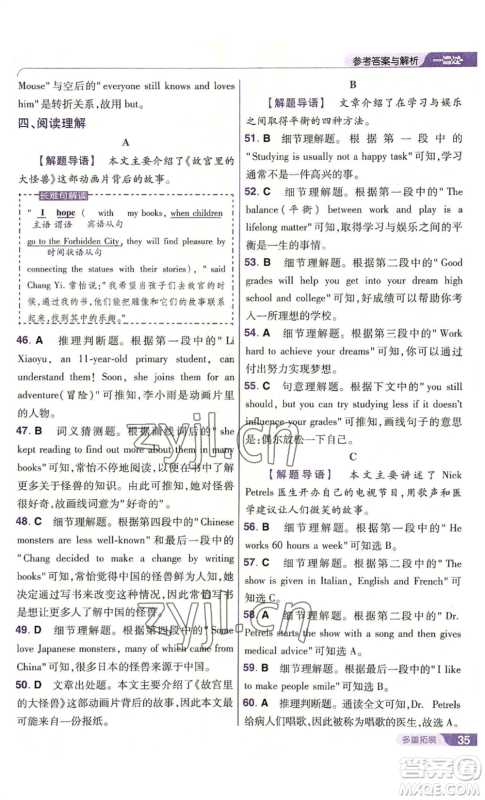 参考答案与解析 一遍过
Mouse"与空后的"everyone still knows and loves
him"是转折关系，故用but。
四、阅读理解
A
【解题导语】 本文主要介绍了《故宫里的
大怪兽》这部动画片背后的故事。
长难句解读
"I hope (with my books, when children
主语 谓语 宾语从句
go to the Forbidden City, they will find pleasure by
时间状语从句
connecting the statues with their stories)," said
Chang Yi. 常怡说："我希望当孩子们去故宫时，
借助我的书，他们能把雕像和它们的故事联系
起来，从而找到其中的乐趣。"
46. A 推理判断题。根据第一段中的"Li
Xiaoyu, an 11-year-old primary student, can
understand them! She joins them for an
adventure(冒险)"可知，李小雨是动画片里
的人物。
47. B 词义猜测题。根据画线词后的"she
kept reading to find out more about them in
many books"可知，常怡在不断阅读，以便在
很多书中了解更多关于中国的怪兽。她对怪
兽很好奇，故画线词意为"好奇的"。
48. C 细节理解题。根据第四段中的"Chinese
monsters are less well-known"和第五段中的
"Chang decided to make a change by writing
books"可知，常怡发现中国的怪兽鲜为人知，她
决定通过写书来改变这种情况，因此常怡写书
是为了让更多人了解中国的怪兽。
49. D 细节理解题。根据第四段中的"Some
love Japanese monsters, many of which came from
China"可知，日本的很多怪兽来源于中国。
50. D 文章出处题。本文主要介绍了《故宫里
的大怪兽》这部动画片背后的故事，因此本文可
能来自一份报纸。
B
【解题导语】 文章介绍了在学习与娱乐
之间取得平衡的四种方法。
51. B 细节理解题。根据第一段中的
"Studying is usually not a happy task"可知，学习
通常不是一件高兴的事。
52. C 细节理解题。根据第一段中的"The
balance(平衡) between work and play is a
lifelong matter"可知，取得学习与娱乐之间的平
衡是一生的事情。
53. B 细节理解题。根据第二段中的"Good
grades will help you get into your dream high
school and college"可知，好成绩可以帮助你进
入一所理想的学校。
54. A 细节理解题。根据第三段中的"Work
hard to achieve your dreams"可知，我们可以通过
付出努力实现梦想。
55. C 句意理解题。根据下文中的"you still
should, but you can try studying less if it doesn't
influence your grades"可知，画线句子的意思
是：偶尔放松一下。
C
【解题导语】 本文主要讲述了Nick
Petrels医生开办自己的电视节目，用歌声和医
学建议让人们微笑的故事。
56. B 细节理解题。根据第一段中的"He
works 60 hours a week"可知选B。
57. C 细节理解题。根据第二段中的"The show
is given in Italian, English and French"可知选C。
58. A 细节理解题。根据第二段中的"Dr.
Petrels sings about half of the time, and then gives
medical advice"可知选A。
59. B 细节理解题。根据最后一段中的"I like
to make people smile"可知选B。
60. A 推理判断题。通读全文可知，Dr. Petrels
给病人们唱歌，他被称为唱歌的医生，故选A。
多重拓展 35
zyjl.cn
zyjl.cn
答案圈
MXQE.COM